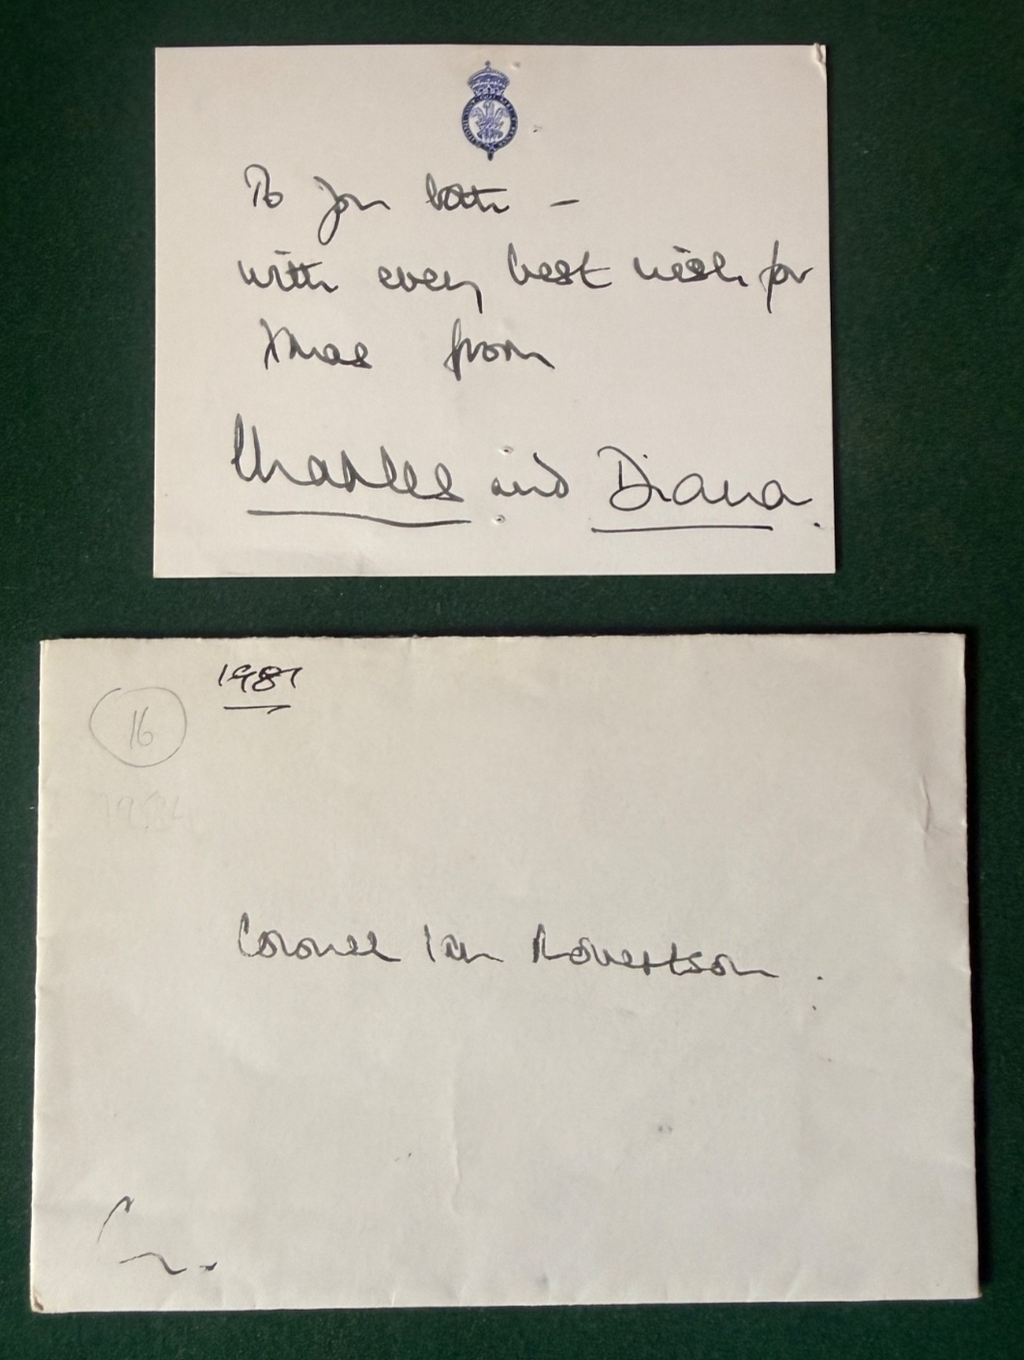 To you both -
with every best wish for
Xmas from
Charles and Diana.
1981
16
Colonel Ian Robertson.